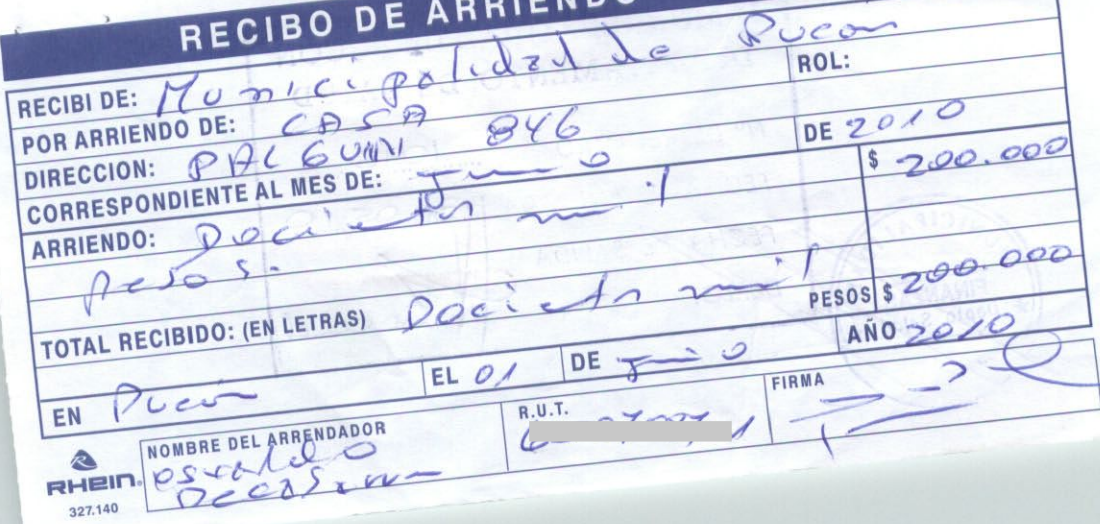 RECIBO DE ARRIENDO
RECIBI DE: Municipalidad de Pucon
ROL:
POR ARRIENDO DE: CASA
DIRECCION: PALGUIN 846
DE 2010
CORRESPONDIENTE AL MES DE: Junio
$ 200.000
ARRIENDO: Docientos mil
pesos.
TOTAL RECIBIDO: (EN LETRAS) Docientos mil
PESOS $ 200.000
EN Pucon EL 01 DE Junio AÑO 2010
NOMBRE DEL ARRENDADOR
Osvaldo
R.U.T.
FIRMA
RHEIN.
327.140